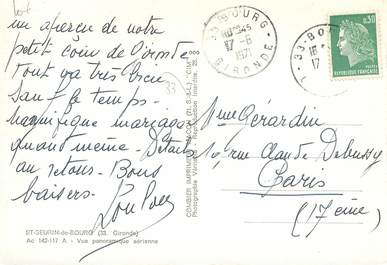 un aperçu de notre
petit coin de Gironde
Tout va très bien
sauf le temps -
magnifique mariage
quand même - Détails
au retour - Bons
baisers -
33
ST-SEURIN-de-BOURG (33. Gironde)
Ac 142-117 A - Vue panoramique aérienne
COMBIER IMPRIMEUR MACON (71. S.-&-L.) "CIM"
33 BOURG
17 -8
1971
GIRONDE
33-BO
17
0,30
REPUBLIQUE FRANÇAISE
Mme Gérardin
10, rue Claude Debussy
Paris
(17ème)